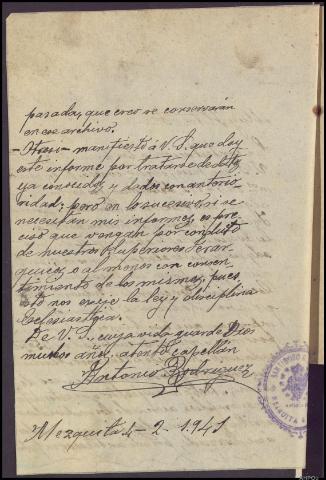 pasadas, que creo se conservarán
en ese archivo.
- Otrosi - manifiesto á V. S. que doy
este informe por tratarse de datos
ya conocidos y dados con anterio-
ridad; pero en lo sucesivo si se
necesitan mis informes, es pre-
ciso que vengan por conducto
de nuestros Superiores Jerár-
quicos, o al menos con consen-
timiento de los mismos, pues
esto nos exije la ley y disciplina
Eclesiastica.
De V. S., cuya vida guarde Dios
muchos años, atento capellán
Antonio Rodriguez
Mezquita 4-2-1941